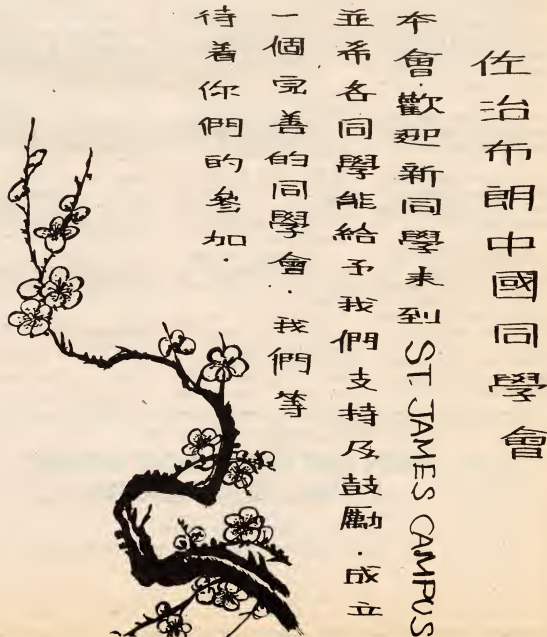 佐治布朗中國同學會
本會·歡迎新同學來到 ST. JAMES CAMPUS
並希各同學能給予我們支持及鼓勵·成立
一個完善的同學會·我們等
待着你們的參加·